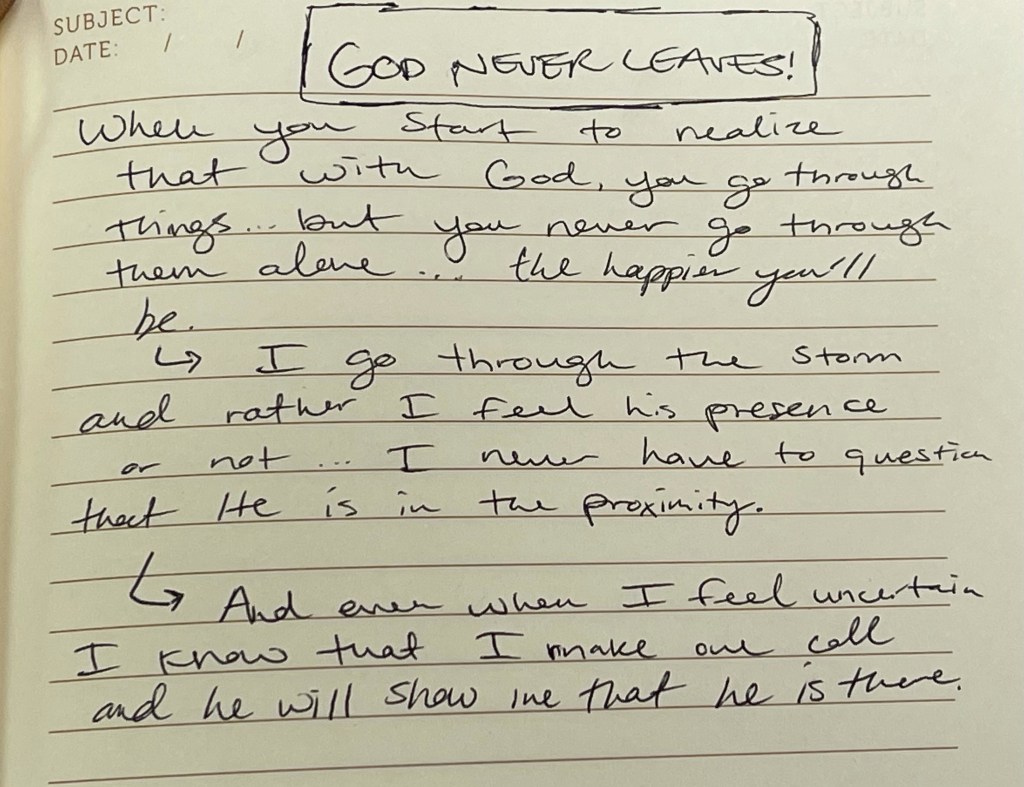 SUBJECT:
DATE: / /
GOD NEVER LEAVES!
When you start to realize
that with God, you go through
things... but you never go through
them alone... the happier you'll
be.
↳ I go through the storm
and rather I feel his presence
or not... I never have to question
that He is in the proximity.
↳ And even when I feel uncertain
I know that I make one call
and he will show me that he is there.